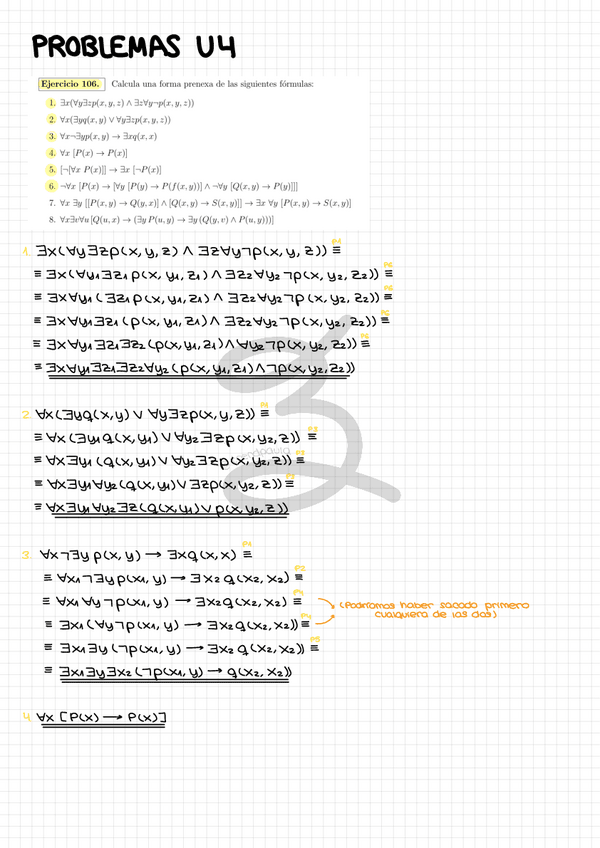 PROBLEMAS U4
Ejercicio 106. Calcula una forma prenexa de las siguientes fórmulas:
1. ∃x(∀y∃zp(x, y, z) ∧ ∃z∀y¬p(x, y, z))
2. ∀x(∃yq(x, y) ∨ ∀y∃zp(x, y, z))
3. ∀x¬∃yp(x, y) → ∃xq(x, x)
4. ∀x [P(x) → P(x)]
5. [¬[∀x P(x)]] → ∃x [¬P(x)]
6. ¬∀x [P(x) → [∀y [P(y) → P(f(x, y))] ∧ ¬∀y [Q(x, y) → P(y)]]]
7. ∀x ∃y [[P(x, y) → Q(y, x)] ∧ [Q(x, y) → S(x, y)]] → ∃x ∀y [P(x, y) → S(x, y)]
8. ∀x∃v∀u [Q(u, x) → (∃y P(u, y) → ∃y (Q(y, v) ∧ P(u, y)))]
1. ∃x(∀y∃zp(x, y, z) ∧ ∃z∀y¬p(x, y, z)) ≡ P1
≡ ∃x(∀y₁∃z₁ p(x, y₁, z₁) ∧ ∃z₂∀y₂ ¬p(x, y₂, z₂)) ≡
≡ ∃x∀y₁ (∃z₁ p(x, y₁, z₁) ∧ ∃z₂∀y₂ ¬p(x, y₂, z₂)) ≡
≡ ∃x∀y₁∃z₁ (p(x, y₁, z₁) ∧ ∃z₂∀y₂ ¬p(x, y₂, z₂)) ≡
≡ ∃x∀y₁∃z₁∃z₂ (p(x, y₁, z₁) ∧ ∀y₂ ¬p(x, y₂, z₂)) ≡
≡ ∃x∀y₁∃z₁∃z₂∀y₂ (p(x, y₁, z₁) ∧ ¬p(x, y₂, z₂))
2. ∀x(∃yq(x, y) ∨ ∀y∃zp(x, y, z)) ≡ P1
≡ ∀x (∃y₁ q(x, y₁) ∨ ∀y₂∃z p(x, y₂, z)) ≡
≡ ∀x∃y₁ (q(x, y₁) ∨ ∀y₂∃z p(x, y₂, z)) ≡
≡ ∀x∃y₁∀y₂ (q(x, y₁) ∨ ∃z p(x, y₂, z)) ≡
≡ ∀x∃y₁∀y₂∃z (q(x, y₁) ∨ p(x, y₂, z))
3. ∀x¬∃y p(x, y) → ∃x q(x, x) ≡ P1
≡ ∀x₁¬∃y p(x₁, y) → ∃x₂ q(x₂, x₂) ≡ P2
≡ ∀x₁ ∀y ¬p(x₁, y) → ∃x₂ q(x₂, x₂) ≡
(Podríamos haber sacado primero
cualquiera de las dos)
≡ ∃x₁ (∀y¬p(x₁, y) → ∃x₂ q(x₂, x₂)) ≡
≡ ∃x₁∃y (¬p(x₁, y) → ∃x₂ q(x₂, x₂)) ≡
≡ ∃x₁∃y∃x₂ (¬p(x₁, y) → q(x₂, x₂))
4. ∀x [P(x) → P(x)]